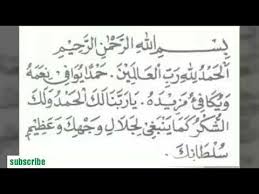 بِسْمِ اللهِ الرَّحْمٰنِ الرَّحِيْمِ
اَلْحَمْدُ لِلّٰهِ رَبِّ الْعَالَمِيْنَ. حَمْدًا يُوَافِيْ نِعَمَهُ
وَيُكَافِئُ مَزِيْدَهُ. يَارَبَّنَا لَكَ الْحَمْدُ وَلَكَ
الشُّكْرُ كَمَا يَنْبَغِيْ لِجَلَالِ وَجْهِكَ وَعَظِيْمِ
سُلْطَانِكَ
subscribe